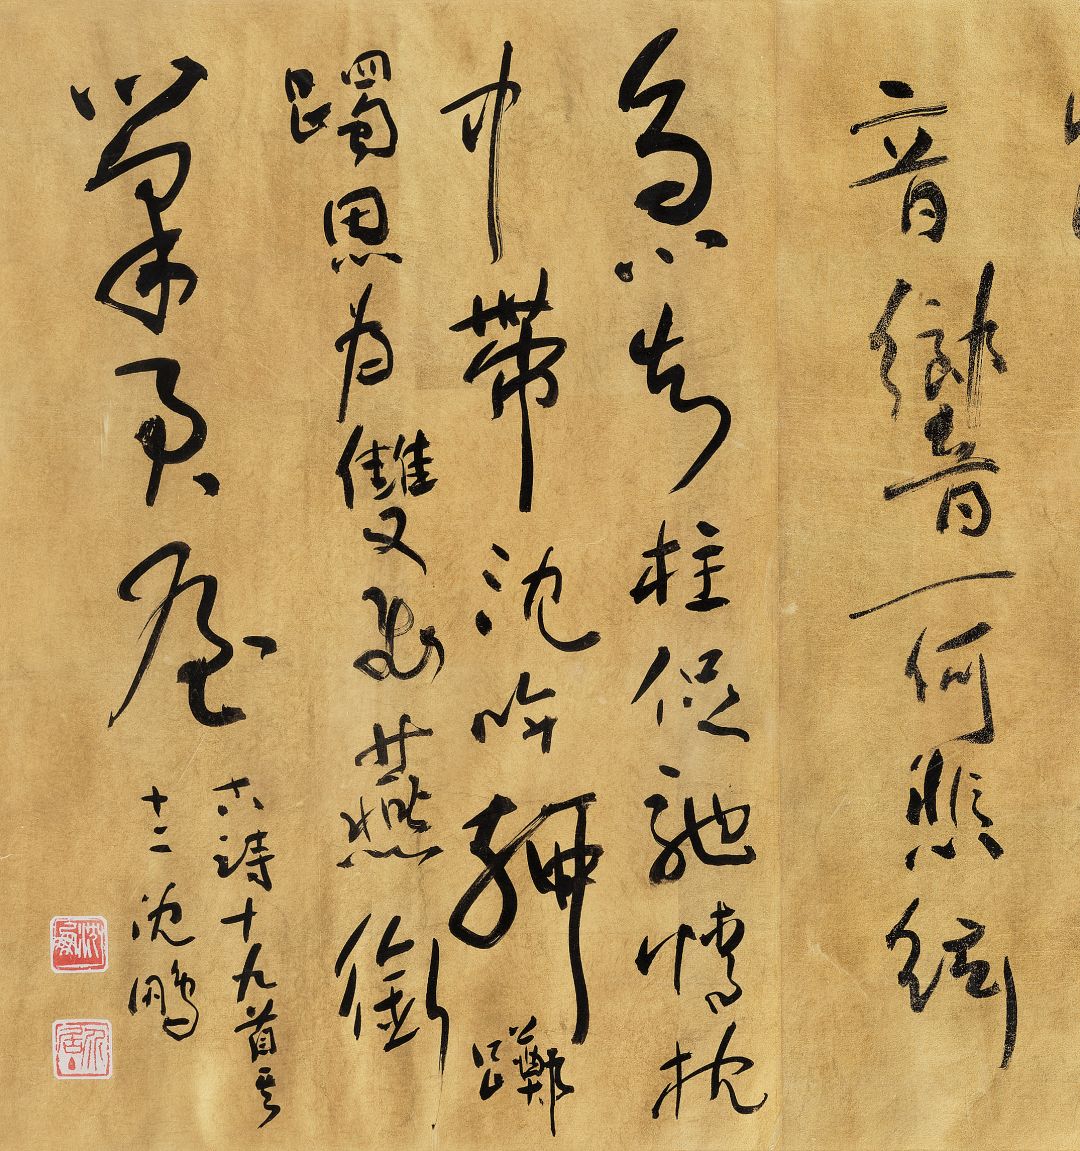 音響一何悲絃
急知柱促馳情
巾帶沈吟聊躑
躅思為雙飛燕銜
巢君屋
古詩十九首其
十二沈鵬
沈鵬
介居